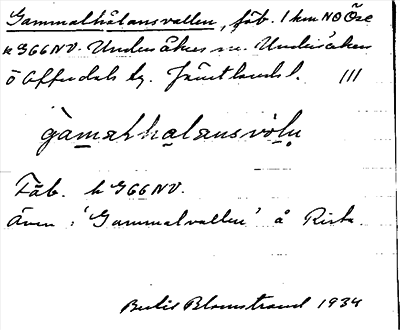 Gammalhålansvallen, fäb. 1 km NO Öse
k 366 NV. Undersåkers sn. Undersåkers
o Offerdals tg. Jämtlands l. III
gàmaḷhaḷansvòlṇ
Fäb. k 366 NV.
Även: 'Gammalvallen' å Rista.
Bertil Blomstrand 1934